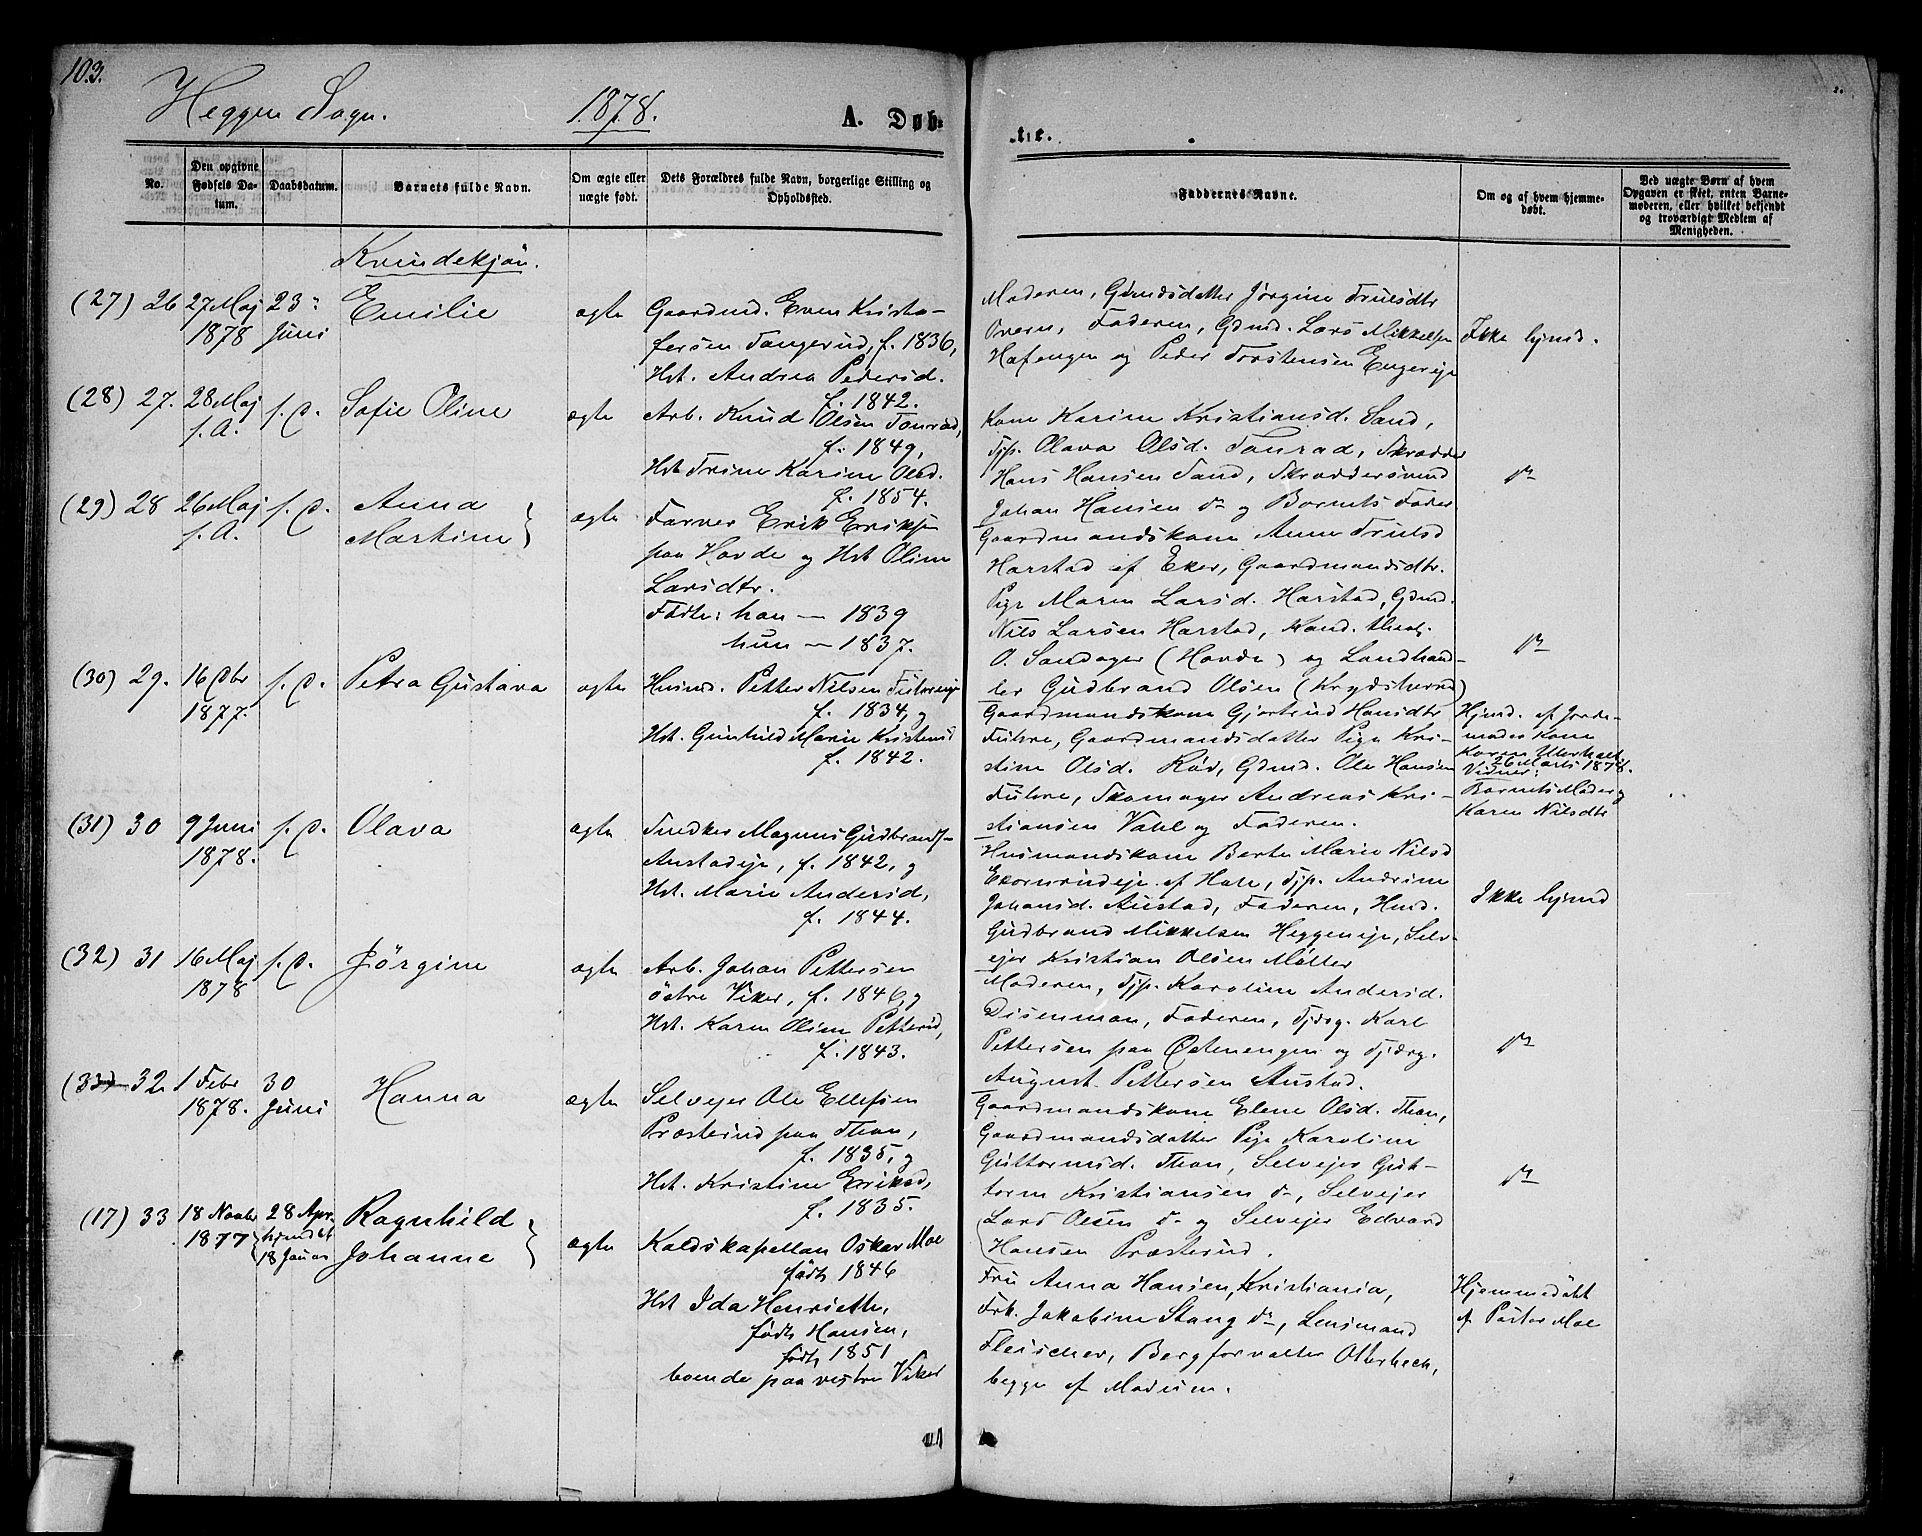 103.
Heggen Sogn. 1878. A. Døb-
te.
No.
Den opgivne Fødsels Da-
tum.
Daabsdatum.
Barnets fulde Navn.
Om ægte eller
uægte født.
Dets Forældres fulde Navn, borgerlige Stilling og
Opholdsted.
Faddernes Navne.
Om og af hvem hjemme-
døbt.
Ved uægte Børn af hvem
Opgaven er skeet, enten Barne-
moderen, eller hvilket bekjendt
og troværdigt Medlem af
Menigheden.
Kvindekjøn.
(27) 26 27 Maj 23 Emilie ægte Gaardmd. Even Kristo-
1878 Juni
fersen Tangerud, f. 1836,
Hst. Andrea Pedersd.
f. 1842.
Moderen, Gdmdsdatter Jørgine Trulsdtr
Overn, Faderen, Gdmd. Lars Mikkelsen
Hafengen og Peder Torstensen Engereje
Ikke hjmd.
(28) 27. 28 Maj s. D. Sofie Oline ægte Arb. Knud Olsen Tonrad,
s. A.
f. 1849,
Hst Trine Karine Olsd.
f. 1854.
Kone Karine Kristiansd. Sand,
Tjp. Olava Olsd. Tonrad, Skrædder
Hans Hansen Sand, Skræddersvend
Johan Hansen do og Barnets Fader
do
(29) 28 26 Maj s. D. Anna ægte Farver Erik Eriksen
s. A. Martine
paa Hovde og Hst Oline
Larsdtr.
Fødte: han — 1839
hun — 1837.
Gaardmandskone Anne Trulsd
Harstad af Eker, Gaardmandsdtr.
Pige Maren Larsd. Harstad, Gdmd.
Nils Larsen Harstad, Kand. theol.
O. Sandager (Hovde) og Landhand-
ler Gudbrand Olsen (Krydsherred)
do
(30) 29. 16 Dbr s. D. Petra Gustava ægte Husmd. Petter Nilsen
1877.
f. 1834, og
Hst. Gunhild Marie Kristensd
f. 1842.
Gaardmandskone Gjertrud Hansdtr
Fuhre, Gaardmandsdatter Pige Kri-
stine Olsd. Kød, Gdmd. Ole Hansen
Fuhre, Skomager Andreas Kri-
stiansen Vahl og Faderen.
Hjmd. af Jorde-
moder Kone
Karen
26 Marts 1878.
Vidner:
Barnets Moder og
Karen Nilsdtr
(31) 30 9 Juni s. D. Olava ægte Snedker Magnus Gudbrands-
1878.
Austadeje, f. 1842, og
Hst. Marie Andersd,
f. 1844.
Husmandskone Berte Marie Nilsd
Ekornrudeje af Hole, Tjp. Andrine
Johansd. Austad, Faderen, Husmd.
Gudbrand Mikkelsen Heggeneje, Selv-
ejer Kristian Olsen Møller
Ikke hjmd
(32) 31 16 Maj s. D. Jörgine ægte Arb. Johan Pettersen
1878
östre Viker, f. 1846, og
Hst. Karen Olsen Petterud,
f. 1843.
Moderen, Tjp. Karoline Andersd.
Disenmoen, Faderen, Tjdrg. Karl
Pettersen paa Østmengen og Tjdrg.
August Pettersen Austad.
do
(33) 32 1 Febr 30 Hanna ægte Selvejer Ole Ellefsen
1878. Juni
Præsterud paa Thon,
f. 1835, og
Hst. Kristine Eriksd,
f. 1835.
Gaardmandskone Elene Olsd. Thon,
Gaardmandsdatter Pige Karoline
Guttormsd. Thon, Selvejer Gut-
torm Kristiansen do, Selvejer
Lars Olsen do og Selvejer Edvard
Hansen Præsterud.
do
(17) 33 18 Novbr 28 Apr. Ragnhild ægte Kaldskapellan Oskar Moe
1877 hjmdbt Johanne
18 Januar
født 1846
Hst Ida Henriette,
født Hansen,
født 1851
boende paa vestre Viker
Fru Anna Hansen, Kristiania,
Frk. Jakobine Stang do, Lensmand
Fleischer, Bergforvalter Otterbech,
begge af Modum.
Hjemmedøbt
af Pastor Moe